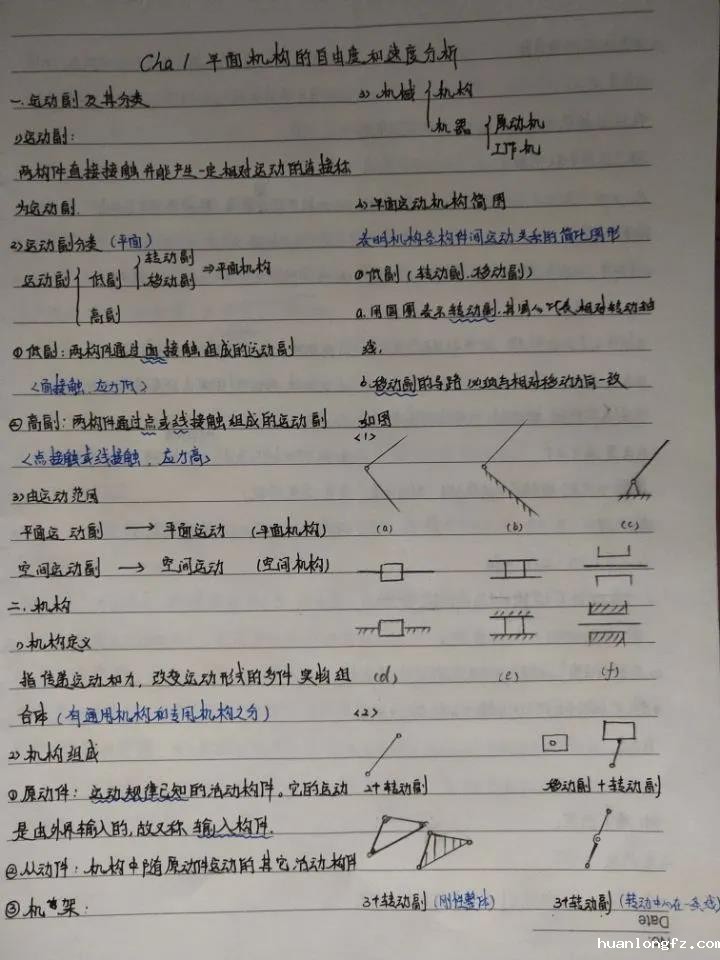 Cha 1 平面机构的自由度和速度分析
一. 运动副及其分类
1) 运动副:
两构件直接接触并能产生一定相对运动的连接称
为运动副.
2) 运动副分类 (平面)
运动副 低副 转动副 移动副 ⇒平面机构
高副
① 低副: 两构件通过面接触组成的运动副
<面接触. 应力低>
② 高副: 两构件通过点或线接触组成的运动副
<点接触或线接触. 应力高>
3) 由运动范围
平面运动副 → 平面运动 (平面机构)
空间运动副 → 空间运动 (空间机构)
二. 机构
1) 机构定义
指传递运动和力, 改变运动形式的多件实物组
合体 (有通用机构和专用机构之分)
2) 机构组成
① 原动件: 运动规律已知的活动构件。它的运动
是由外界输入的, 故又称 输入构件.
② 从动件: 机构中随原动件运动的其它活动构件
③ 机架:
3) 机械 机构
机器 原动机
工作机
4) 平面运动机构简图
表明机构各构件间运动关系的简化图形
① 低副 (转动副. 移动副)
a. 用圆圈表示转动副. 其圆心代表相对转动轴
线.
b. 移动副的导路必须与相对移动方向一致
如图
<1>
(a) (b) (c)
(d) (e) (f)
<2>
2个转动副 移动副+转动副
3个转动副 (刚性整体) 3个转动副 (转动中心在一条线)
Date
No.
huanlongfz.com